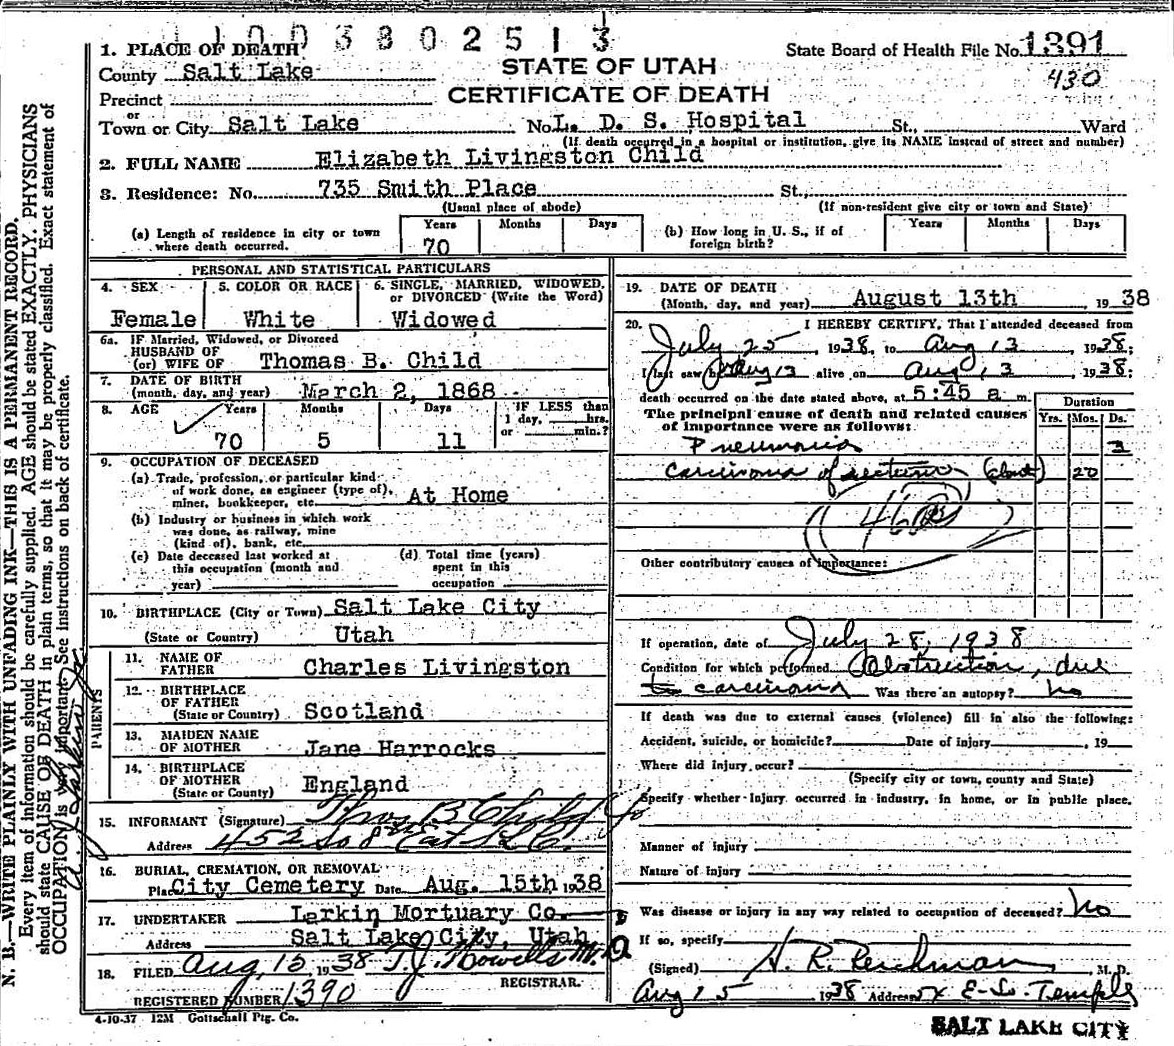 1 1 0 0 3 8 0 2 5 1 3
1. PLACE OF DEATH
State Board of Health File No. 1391
County Salt Lake
STATE OF UTAH
430
Precinct
CERTIFICATE OF DEATH
or
Town or City Salt Lake No. L. D. S. Hospital St., Ward
(If death occurred in a hospital or institution, give its NAME instead of street and number)
2. FULL NAME Elizabeth Livingston Child
3. Residence: No. 735 Smith Place St.,
(Usual place of abode) (If non-resident give city or town and State)
(a) Length of residence in city or town where death occurred. Years 70 Months Days
(b) How long in U. S., if of foreign birth? Years Months Days
PERSONAL AND STATISTICAL PARTICULARS
4. SEX Female
5. COLOR OR RACE White
6. SINGLE, MARRIED, WIDOWED, or DIVORCED (Write the Word) Widowed
6a. IF Married, Widowed, or Divorced
HUSBAND OF
(or) WIFE OF Thomas B. Child
7. DATE OF BIRTH
(month, day, and year) March 2, 1868
8. AGE Years 70 Months 5 Days 11
IF LESS than 1 day, hrs. or min.?
9. OCCUPATION OF DECEASED
(a) Trade, profession, or particular kind
of work done, as engineer (type of),
miner, bookkeeper, etc. At Home
(b) Industry or business in which work
was done, as railway, mine
(kind of), bank, etc.
(c) Date deceased last worked at
this occupation (month and
year)
(d) Total time (years)
spent in this
occupation
10. BIRTHPLACE (City or Town) Salt Lake City
(State or Country) Utah
PARENTS
11. NAME OF
FATHER Charles Livingston
12. BIRTHPLACE
OF FATHER
(State or Country) Scotland
13. MAIDEN NAME
OF MOTHER Jane Harrocks
14. BIRTHPLACE
OF MOTHER
(State or Country) England
15. INFORMANT (Signature) Thos B Child Jr
Address 452 So 8th East S L C.
16. BURIAL, CREMATION, OR REMOVAL
Place City Cemetery Date Aug. 15th 1938
17. UNDERTAKER Larkin Mortuary Co.
Address Salt Lake City, Utah
18. FILED Aug, 15, 1938 T. J. Howells M.D
REGISTRAR.
REGISTERED NUMBER 1390
4-10-37 12M Gottschall Ptg. Co.
19. DATE OF DEATH
(Month, day, and year) August 13th, 1938
20. I HEREBY CERTIFY, That I attended deceased from
July 25, 1938, to Aug 13, 1938;
I last saw h Aug 13 alive on Aug, 13, 1938;
death occurred on the date stated above, at 5:45 a m.
The principal cause of death and related causes
of importance were as follows:
Duration
Yrs. Mos. Ds.
Pneumonia 3
Carcinoma of rectum (about) 20
46
Other contributory causes of importance:
If operation, date of July 28, 1938
Condition for which performed Obstruction, due
to carcinoma Was there an autopsy? No
If death was due to external causes (violence) fill in also the following:
Accident, suicide, or homicide? Date of injury, 19
Where did injury occur?
(Specify city or town, county and State)
Specify whether injury occurred in industry, in home, or in public place.
Manner of injury
Nature of injury
Was disease or injury in any way related to occupation of deceased? No
If so, specify
(Signed) H. R. Reichman M. D.
Aug 15 1938 Address 54 E-So. Temple
SALT LAKE CITY
N. B.—WRITE PLAINLY WITH UNFADING INK—THIS IS A PERMANENT RECORD.
Every item of information should be carefully supplied. AGE should be stated EXACTLY. PHYSICIANS
should state CAUSE OF DEATH in plain terms, so that it may be properly classified. Exact statement of
OCCUPATION is very important. See instructions on back of certificate.